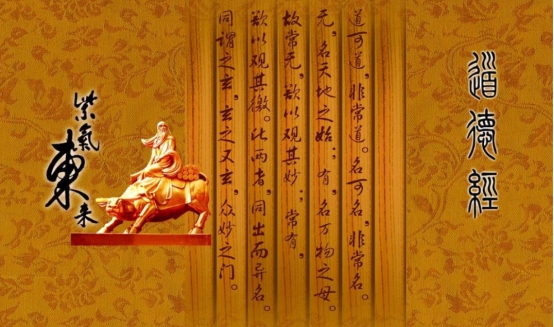 道德經
道可道，非常道。名可名，非常名。
无，名天地之始；有，名万物之母。
故常无，欲以观其妙；常有，
欲以观其徼。此两者，同出而异名。
同谓之玄，玄之又玄，众妙之门。
紫氣東来